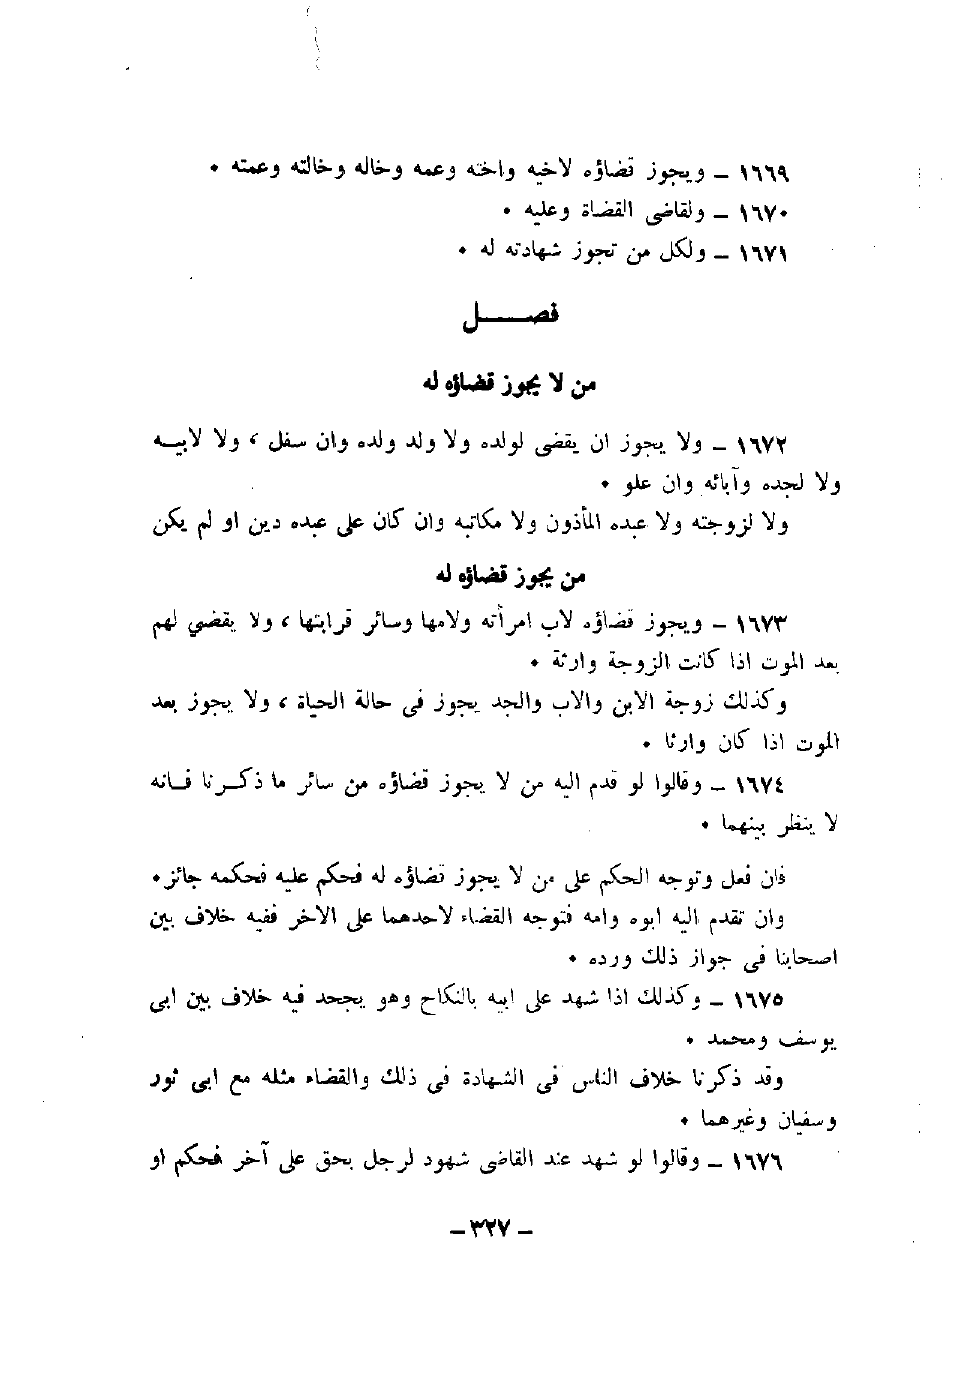 ١٦٦٩ – ويجوز قضاؤه لاخيه واخته وعمه وخاله وخالته وعمته ٠
١٦٧٠ – ولقاضى القضاة وعليه ٠
١٦٧١ – ولكل من تجوز شهادته له ٠
فصــــل
من لا يجوز قضاؤه له
١٦٧٢ – ولا يجوز ان يقضى لولده ولا ولد ولده وان سفل ، ولا لابيــه
ولا لجده وآبائه وان علو ٠
ولا لزوجته ولا عبده المأذون ولا مكاتبه وان كان على عبده دين او لم يكن
من يجوز قضاؤه له
١٦٧٣ – ويجوز قضاؤه لاب امرأته ولامها وسائر قرابتها ، ولا يقضي لهم
بعد الموت اذا كانت الزوجة وارثة ٠
وكذلك زوجة الابن والاب والجد يجوز فى حالة الحياة ، ولا يجوز بعد
الموت اذا كان وارثا ٠
١٦٧٤ – وقالوا لو قدم اليه من لا يجوز قضاؤه من سائر ما ذكــرنا فــانه
لا ينظر بينهما ٠
فان فعل وتوجه الحكم على من لا يجوز قضاؤه له فحكم عليه فحكمه جائز٠
وان تقدم اليه ابوه وامه فتوجه القضاء لاحدهما على الاخر ففيه خلاف بين
اصحابنا فى جواز ذلك ورده ٠
١٦٧٥ – وكذلك اذا شهد على ابيه بالنكاح وهو يجحد فيه خلاف بين ابى
يوسف ومحمد ٠
وقد ذكرنا خلاف الناس فى الشهادة فى ذلك والقضاء مثله مع ابى ثور
وسفيان وغيرهما ٠
١٦٧٦ – وقالوا لو شهد عند القاضى شهود لرجل بحق على آخر فحكم او
– ٣٢٧ –